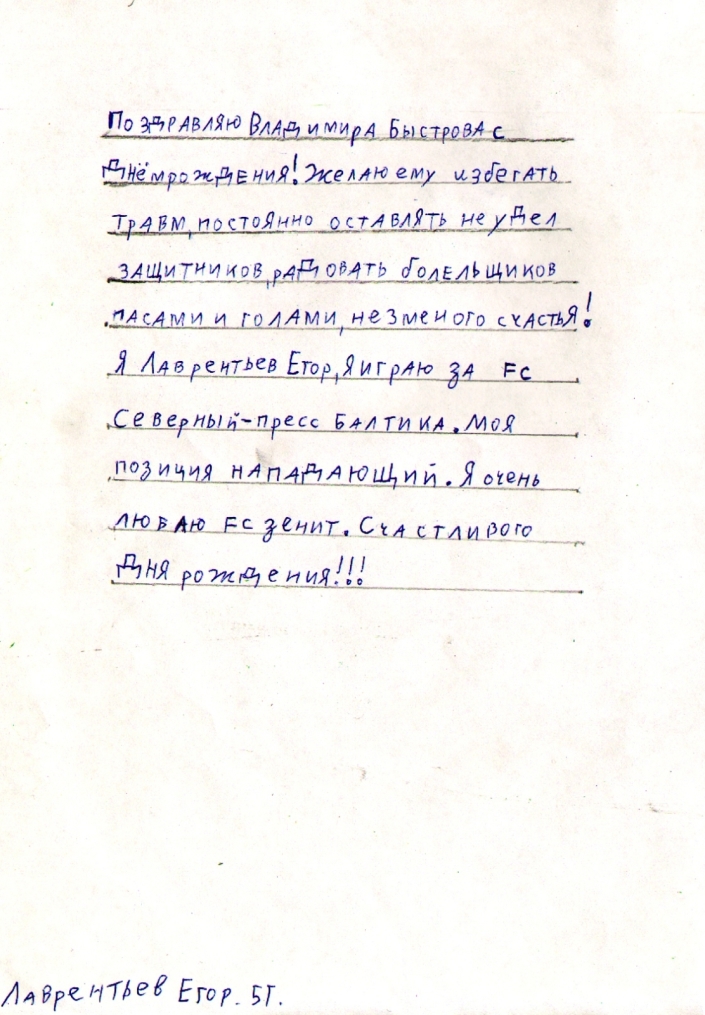 Поздравляю Владимира Быстрова с
Днёмрождения! Желаю ему избегать
травм, постоянно оставлять не удел
защитников, радовать болельщиков
пасами и голами, незменого счастья!
Я Лаврентьев Егор, Я играю за FC
Северный-пресс Балтика. Моя
позиция нападающий. Я очень
люблю FC зенит. Счастливого
Дня рождения!!!
Лаврентьев Егор. 5Г.